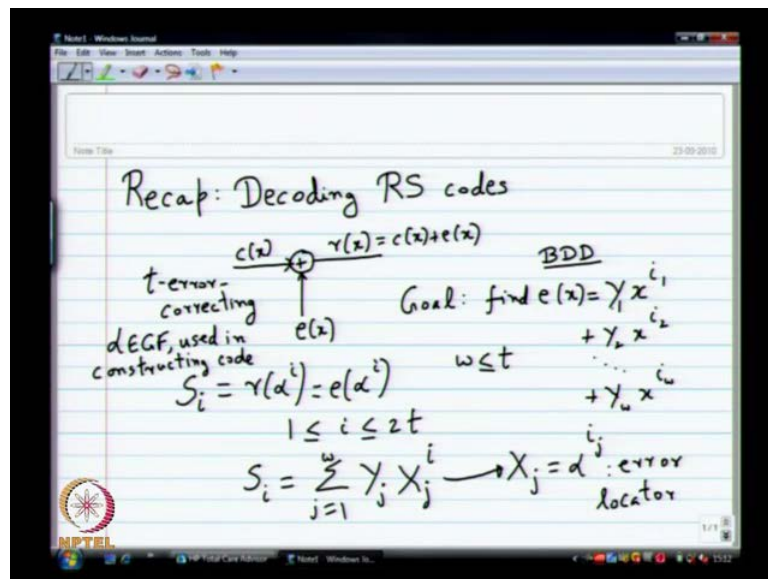 Note1 - Windows Journal
File Edit View Insert Actions Tools Help
Note Title
23-09-2010
Recap: Decoding RS codes
c(x) + r(x) = c(x)+e(x)
e(x)
t-error-
correcting
α∈GF, used in
constructing code
BDD
Goal: find e(x) = Y₁ x^{i₁}
+ Y₂ x^{i₂}
. . . .
+ Y_w x^{i_w}
w ≤ t
S_i = r(α^i) = e(α^i)
1 ≤ i ≤ 2t
S_i = ∑_{j=1}^{w} Y_j X_j^i → X_j = α^{i_j} : error
locator
1/1
NPTEL
HP Total Care Advisor
Note1 - Windows Jo...
1512